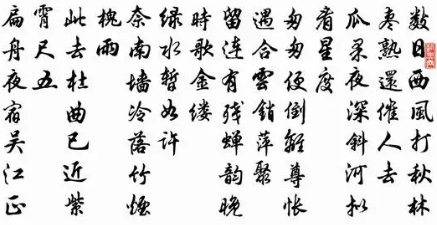 数日西風打秋林
枣熟還催人去
瓜果夜深斜河拟
看星度
匆匆便倒離尊悵
遇合雲銷萍聚
留連有残蝉韵晚
時歌金缕
绿水暫如許
奈南墙冷落竹煙
槐雨
此去杜曲已近紫
霄尺五
扁舟夜宿吴江正